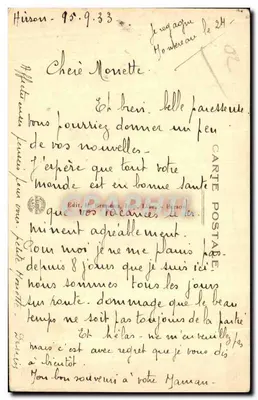 Hirson - 15.9.33
Je regagne
Montereau le 24 -
Chère Monette
Et bien, belle paresseuse
vous pourriez donner un peu
de vos nouvelles.
J'espère que tout votre
monde est en bonne santé
que vos vacances se ter
minent agréablement.
Pour moi je ne me plains pas
depuis 8 jours que je suis ici
nous sommes tous les jours
sur route. dommage que le beau
temps ne soit pas toujours de la partie
Et hélas - ne m'en veuillez pas
mais c'est avec regret que je vous dis
à bientôt.
Mon bon souvenir à votre Maman.
Affectueuses pensées pour vous, petite Monette
CARTE POSTALE
Edit.